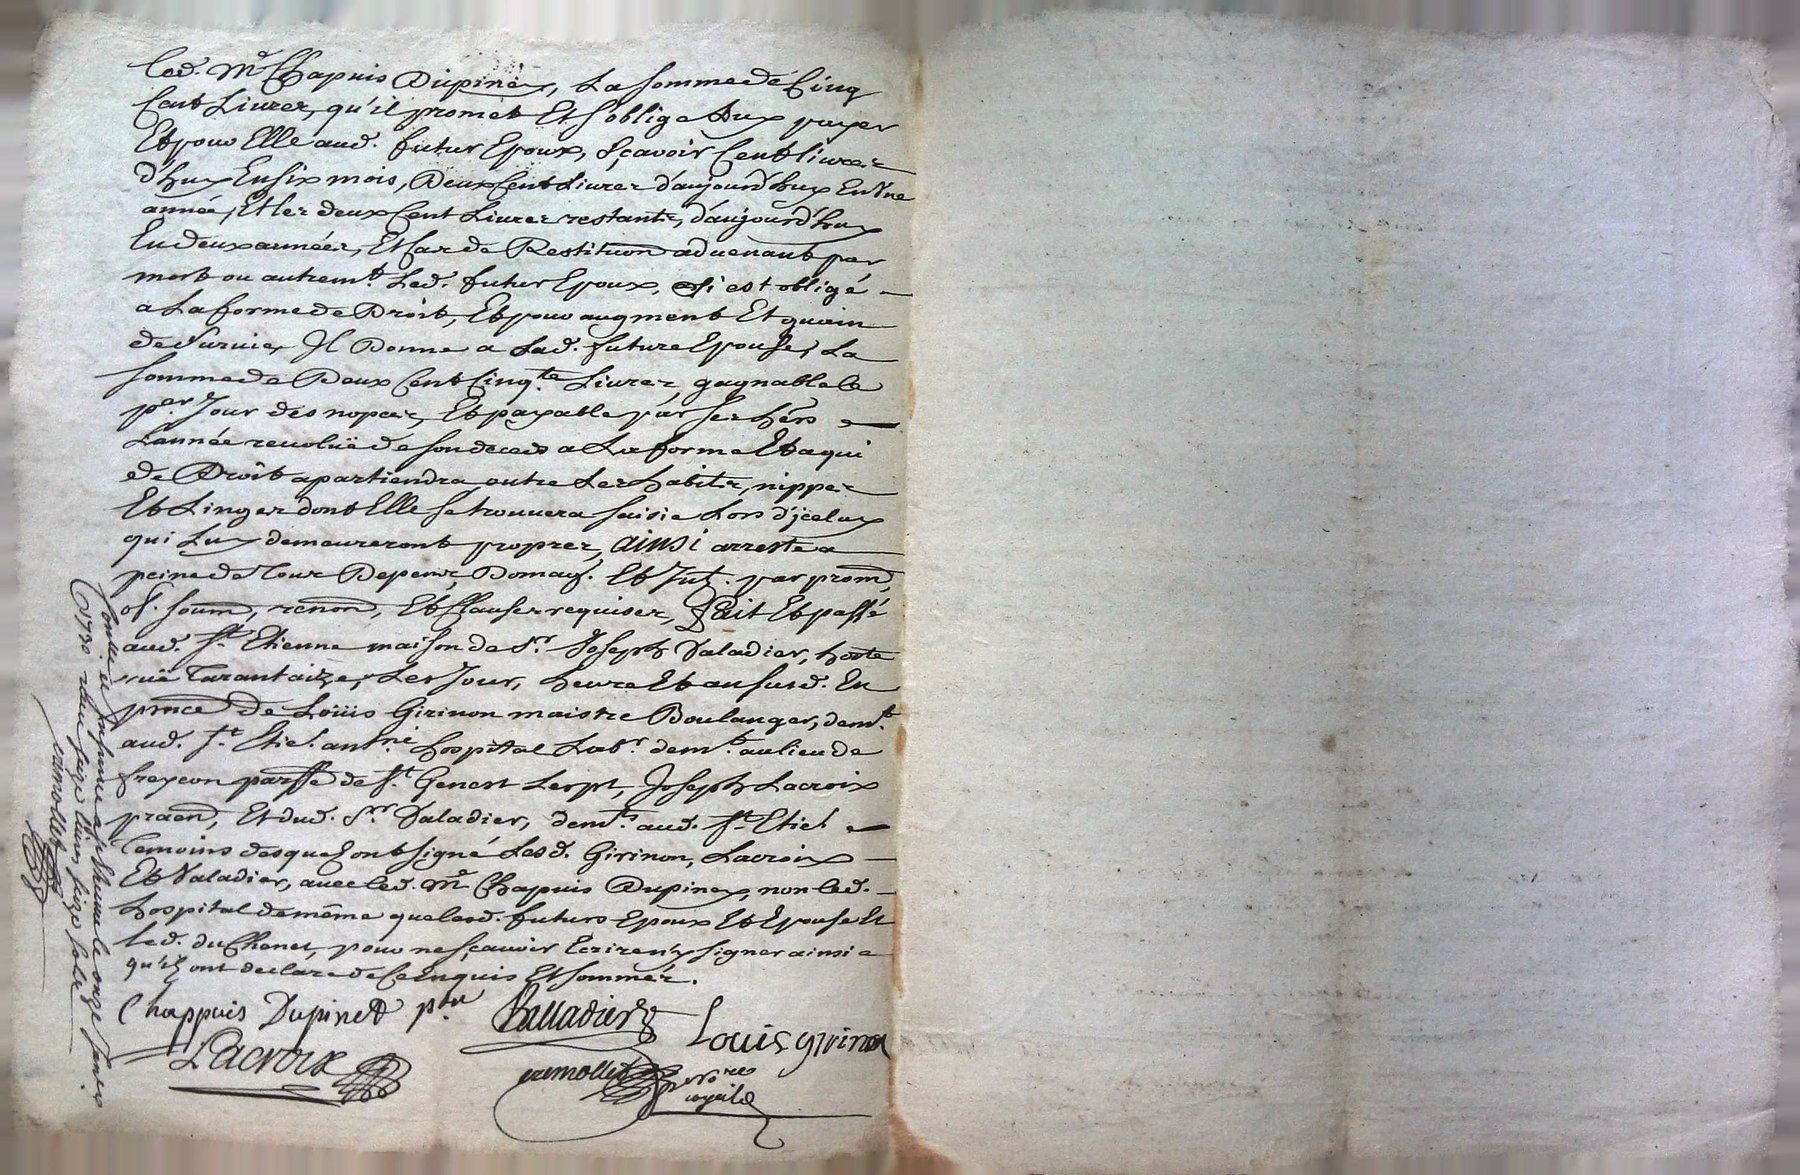 led. Mr. Chapuis Dupinet, La somme de Cinq
Cent Livres, qu'il promet Et s'oblige Luy payer
Et pour Elle aud. futur Epoux, Sçavoir Cent livres
d'huy En six mois, Deux Cent Livres d'aujourd'huy En Une
année, Et les deux Cent Livres restants, d'aujourd'huy
En deux années, Et Cas de Restitution advenant par
mort ou autremt. Led. futur Epoux, s'i est obligé
a La forme de Droit, Et pour augment Et guain
de Survie, Il Donne a Lad. future Epouse, La
somme de Deux Cent Cinqte. Livres, gagnable le
per. Jour des nopces, Et payable par ses hers
L'année revoluë de son deceds a La forme Et a qui
de Droit apartiendra outre Les habits, nippes
Et Linges dont Elle se trouvera saisie Lors d'jceluy
qui Luy demeureront propres, ainsi arresté a
peine de tous Depens, Domag. Et Int. par prom,
ob. soum, renon, Et Clauses requises, Fait Et passé
aud. St. Etienne maison de Sr. Joseph Valadier, hoste
ruë Tarantaize, Les Jour, heure Et an susd. En
pnce de Loüis Girinon maistre Boulanger, demt.
aud. St. Etie. antne hospital Labr. demt. au lieu de
freycon parsse de St. Genest Lerpt, Joseph Lacroix
praen, Et dud. Sr. Valadier, demts. aud. St. Etie.
Temoins desquels ont signé Lesd. Girinon, Lacroix
Et Valadier, avec led. Mr. Chapuis Dupinet, non led.
hospital de même que lesd. futurs Epoux Et Epouse Et
led. du Chenet, pour ne sçavoir Ecrire n'y signer ainsi
qu'ils ont declaré de Ce Enquis Et Sommés.
Chappuis Dupinet
Valladier
Louis girinon
Lacroix
royal
Controllé a St Etienne le onze
1730 reçu seize livres seize sols